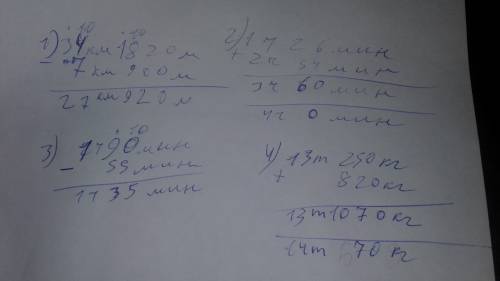 1) 34 км 1820 м
- 7 км 900 м
27 км 920 м
2) 1 ч 26 мин
+ 2 ч 34 мин
3 ч 60 мин
4 ч 0 мин
3) 90 мин
- 55 мин
35 мин
4) 13 т 250 кг
+ 820 кг
13 т 1070 кг
14 т 70 кг